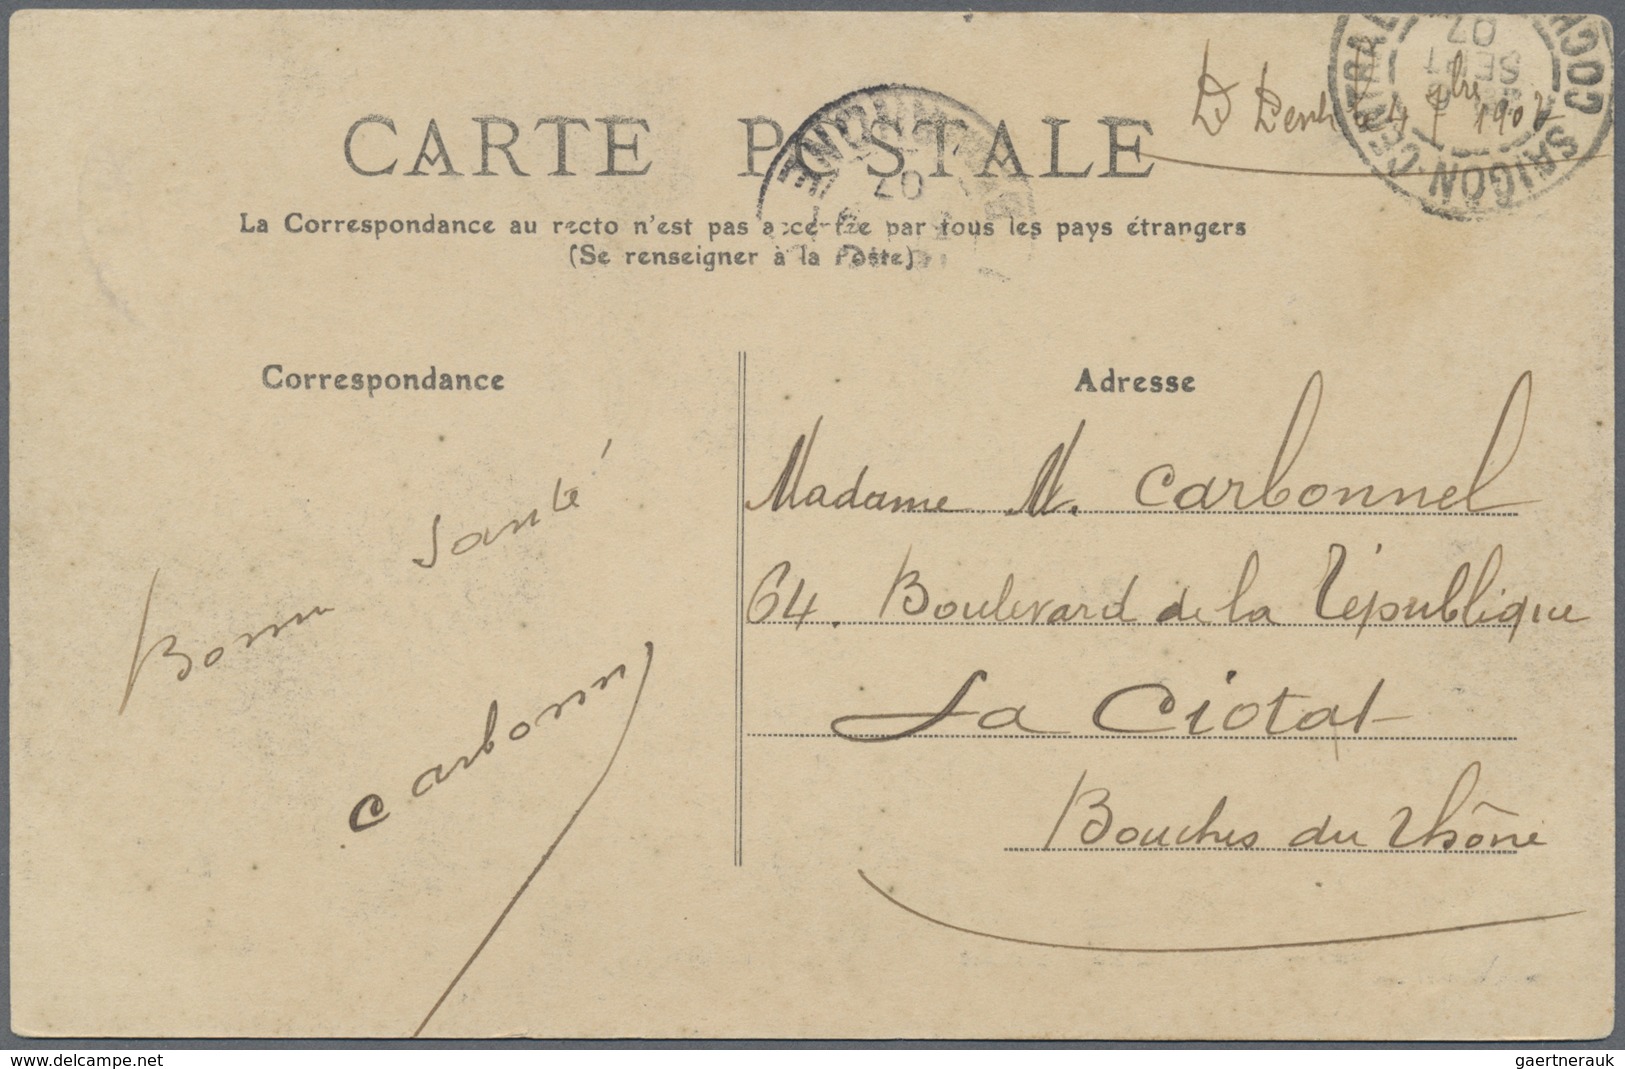 CARTE POSTALE
La Correspondance au recto n'est pas acceptée par tous les pays étrangers
(Se renseigner à la Poste)
4 7bre 1907
SAIGON CENTRAL COCH
SEPT
07
07
Correspondance
Bonne Santé
Carbonn
Adresse
Madame M. Carbonnel
64. Boulevard de la République
La Ciotat
Bouches du Rhône
www.delcampe.net
gaertnerauk